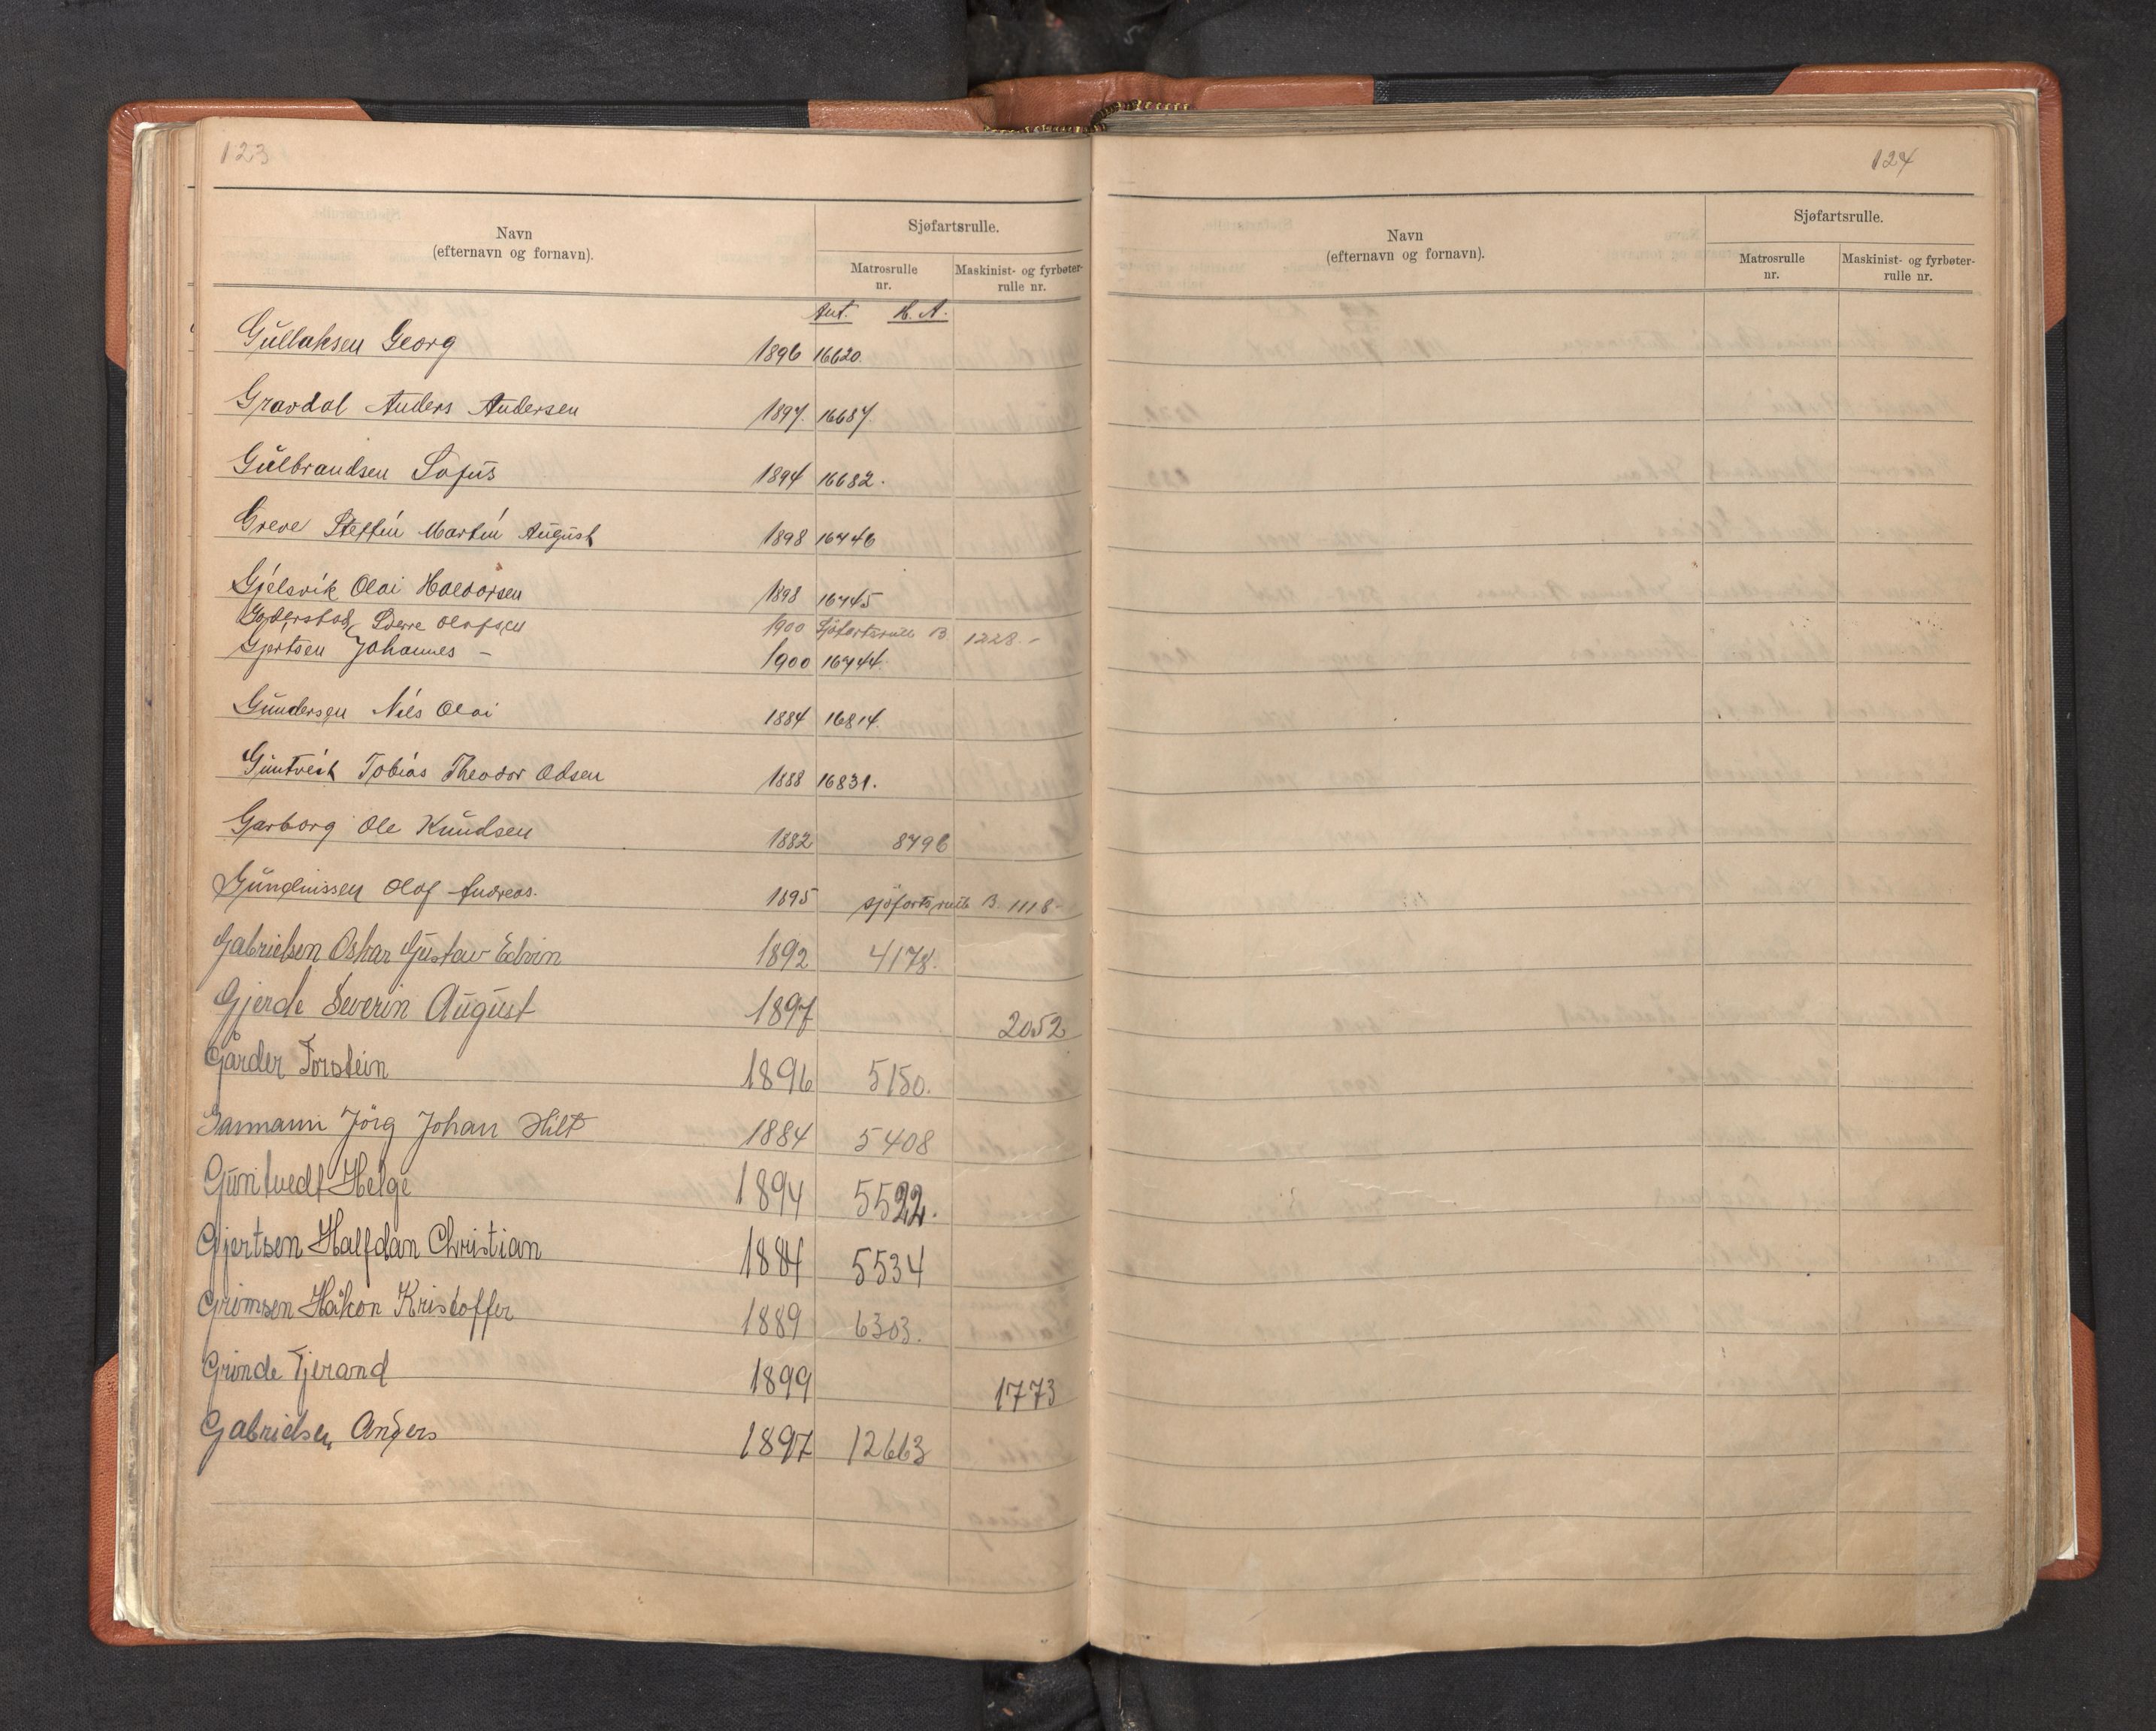 123
Navn
(efternavn og fornavn).
Sjøfartsrulle.
Matrosrulle
nr.
Maskinist- og fyrbøter-
rulle nr.
Ant. H. A.
Gullaksen Georg 1896 16620.
Gravdal Anders Andersen 1897. 16687.
Gulbrandsen Sofus 1894 16682.
Greve Steffen Martin August 1898 16746
Gjelsvik Olai Haldorsen 1898 16745
Olafsen 1900 Sjøfartsrulle B. 1228.-
Gjertsen Johannes - 1900 16744.
Gundersen Nils Olai 1884 16814.
Guntveit Tobias Theodor Odsen 1888 16831.
Garborg Ole Knudsen 1882 8796
Olaf Andreas. 1895 sjøfartsrulle B. 1118-
Gabrielsen Oskar Gustav Edvin 1892 4178.
Gjerde Severin August 1897 2052
Garder Torstein 1896 5150.
Garmann Jörg Johan Hilt 1884 5408
Guntvedt Helge 1894 5522.
Gjertsen Halfdan Christian 1884 5534
Grimsen Håkon Kristoffer 1889 6303.
Grinde Tjerand 1899 1773
Gabrielsen Anders 1897 12663
124
Navn
(efternavn og fornavn).
Sjøfartsrulle.
Matrosrulle
nr.
Maskinist- og fyrbøter-
rulle nr.